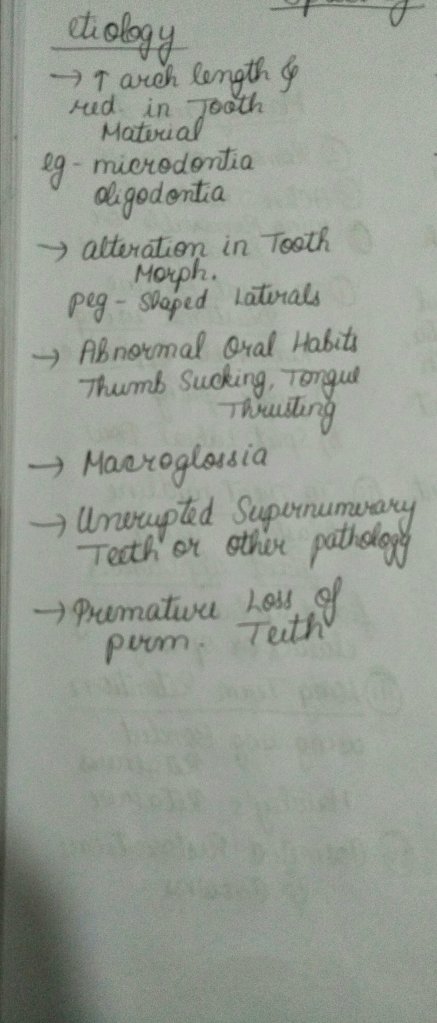 etiology
→ ↑ arch length &
red. in Tooth
Material
eg - microdontia
oligodontia
→ alteration in Tooth
Morph.
peg - Shaped Laterals
→ Abnormal Oral Habits
Thumb Sucking, Tongue
Thrusting
→ Macroglossia
→ Unerupted Supernumerary
Teeth or other pathology
→ Premature Loss of
perm. Teeth